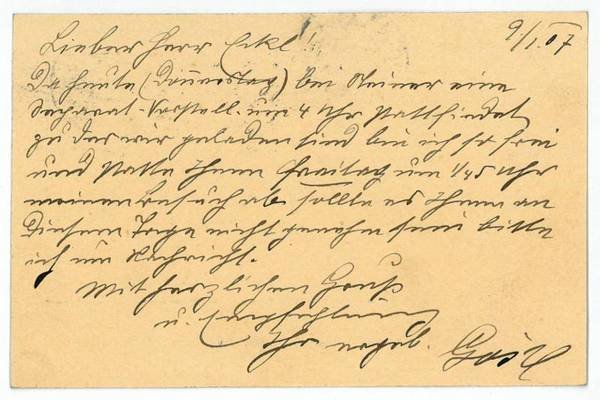 9/I. 07
Lieber Herr Eckl!
Da heute (Donnerstag) bei Steiner eine
Separat-Vorstell. um 4 Uhr stattfindet
zu der wir geladen sind bin ich so frei
und statte Ihnen Freitag um 1/45 Uhr
meinen Besuch ab sollte es Ihnen an
diesem Tage nicht genehm sein bitte
ich um Nachricht.
Mit herzlichen Gruß
u. Empfehlung
Ihr ergeb.